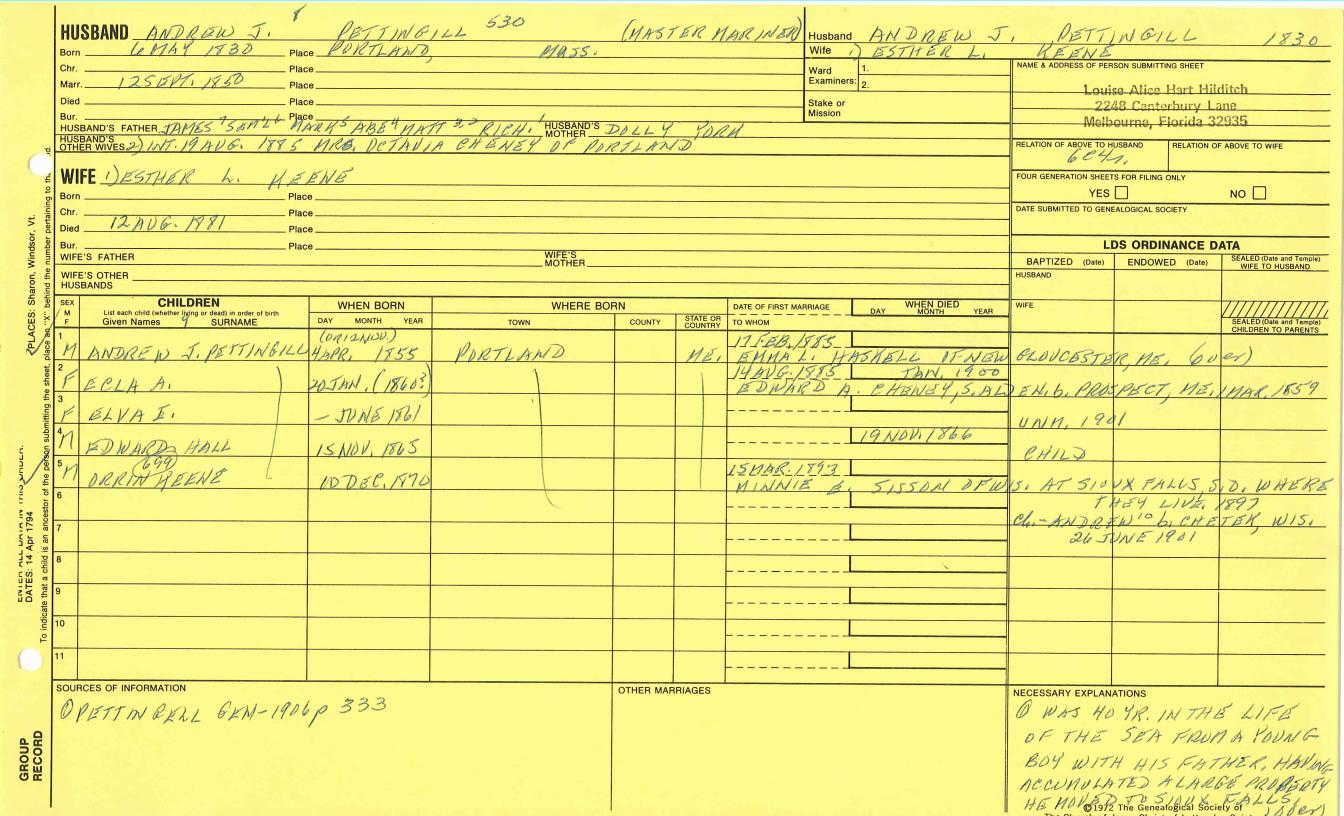 8 530
HUSBAND ANDREW J. PETTINGILL (MASTER MARINER)
Born 6 MAY 1830 Place PORTLAND, MASS.
Chr. Place
Marr. 12 SEPT. 1850 Place
Died Place
Bur. Place
HUSBAND'S FATHER JAMES MARK ABE MATT RICH. HUSBAND'S MOTHER DOLLY YORK
HUSBAND'S OTHER WIVES 2) INT. 19 AUG. 1885 MRS. OCTAVIA CHENEY OF PORTLAND
Husband ANDREW J. PETTINGILL 1830
Wife 1) ESTHER L. KEENE
Ward Examiners: 1.
2.
Stake or Mission
NAME & ADDRESS OF PERSON SUBMITTING SHEET
Louise Alice Hart Hilditch
2248 Canterbury Lane
Melbourne, Florida 32935
RELATION OF ABOVE TO HUSBAND RELATION OF ABOVE TO WIFE
FOUR GENERATION SHEETS FOR FILING ONLY
YES NO
DATE SUBMITTED TO GENEALOGICAL SOCIETY
WIFE 1) ESTHER L. KEENE
Born Place
Chr. Place
Died 12 AUG. 1881 Place
Bur. Place
WIFE'S FATHER WIFE'S MOTHER
WIFE'S OTHER HUSBANDS
LDS ORDINANCE DATA
BAPTIZED (Date) ENDOWED (Date) SEALED (Date and Temple) WIFE TO HUSBAND
HUSBAND
WIFE
SEALED (Date and Temple) CHILDREN TO PARENTS
SEX M F CHILDREN WHEN BORN WHERE BORN DATE OF FIRST MARRIAGE WHEN DIED
List each child (whether living or dead) in order of birth
Given Names 9 SURNAME DAY MONTH YEAR TOWN COUNTY STATE OR COUNTRY TO WHOM DAY MONTH YEAR
1 (OR 12 NOV.) 17 FEB. 1885
M ANDREW J. PETTINGILL 4 APR. 1855 PORTLAND ME. EMMA L. HASKELL OF NEW GLOUCESTER, ME. (over)
2 14 AUG. 1885 JAN. 1900
F ECLA A. 20 JAN. (1860?) EDWARD A. CHENEY, S. ALDEN. b. PROSPECT, ME. 1 MAR. 1859
3
F ELVA I. – JUNE 1861 UNM. 1901
4 19 NOV. 1866
M EDWARD HALL 15 NOV. 1865 CHILD
5 (699) 15 MAR. 1893
M ORRIN KEENE 10 DEC. 1870 MINNIE B. SISSON OF WIS. AT SIOUX FALLS, S.D. WHERE
6 THEY LIVE, 1897
7 Ch.- ANDREW 10 b. CHETEK, WIS.
26 JUNE 1901
8
9
10
11
SOURCES OF INFORMATION
① PETTINGELL GEN-1906 p 333
OTHER MARRIAGES
NECESSARY EXPLANATIONS
① WAS 40 YR. IN THE LIFE
OF THE SEA FROM A YOUNG
BOY WITH HIS FATHER, HAVING
ACCUMULATED A LARGE PROPERTY
HE MOVED TO SIOUX FALLS, (over)
©1972 The Genealogical Society of
PLACES: Sharon, Windsor, Vt.
ENTER ALL DATA IN THIS ORDER:
DATES: 14 Apr 1794
To indicate that a child is an ancestor of the person submitting the sheet, place an "X" behind the number pertaining to
GROUP RECORD